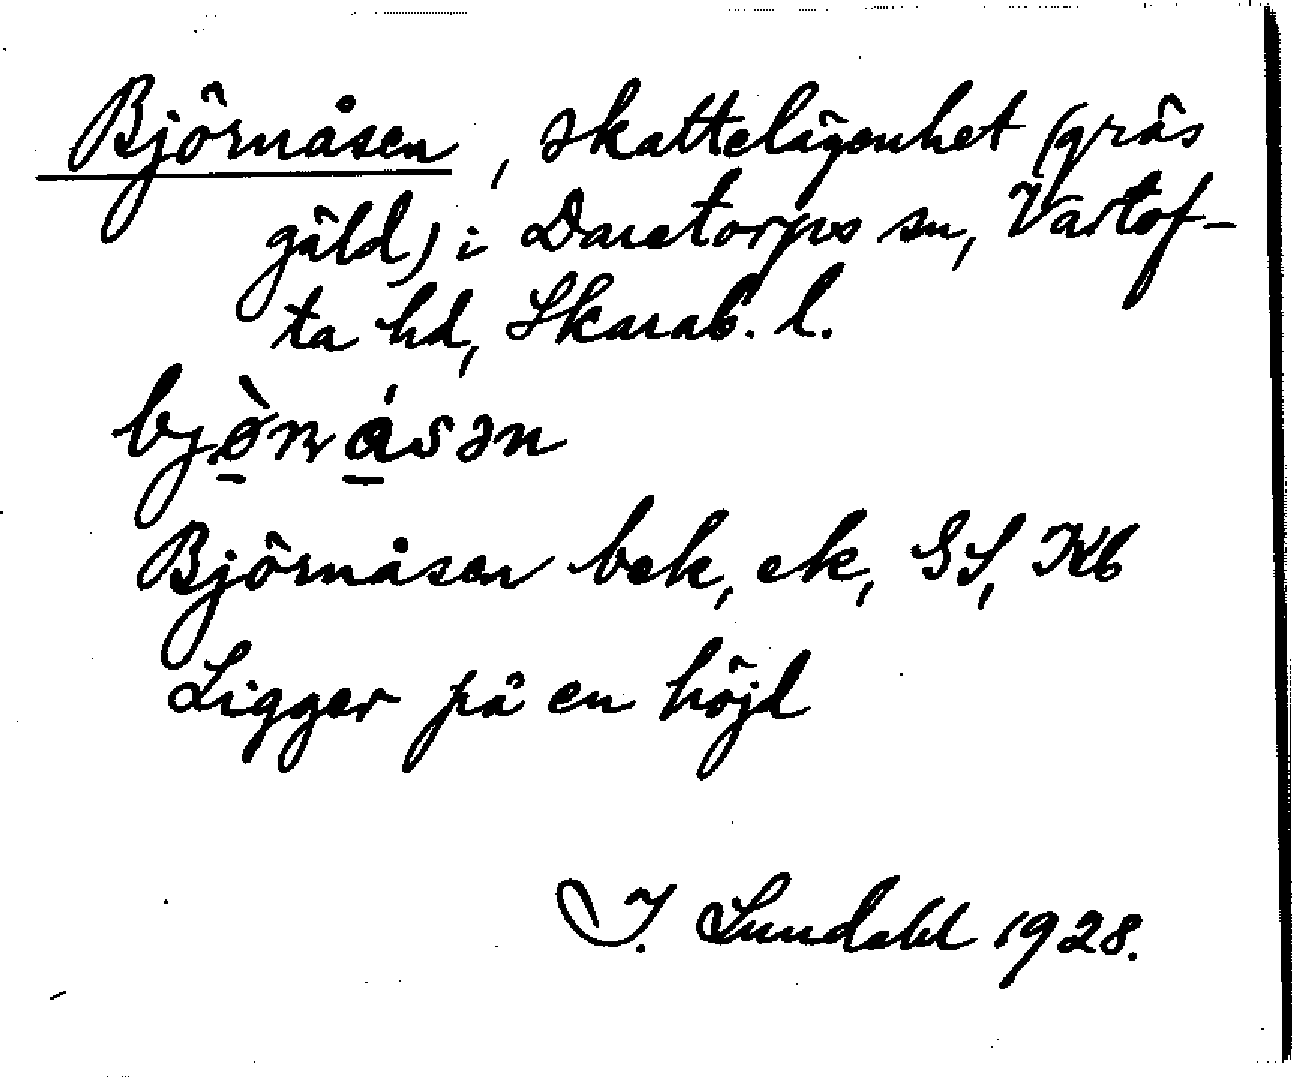 Björnåsen, skattelägenhet (gräs
gäld) i Daretorps sn, Vartof-
ta hd, Skarab. l.
bjö̀ṇåsən
Björnåsen bek, ek, GS, Kb
Ligger på en höjd
I. Lundahl 1928.